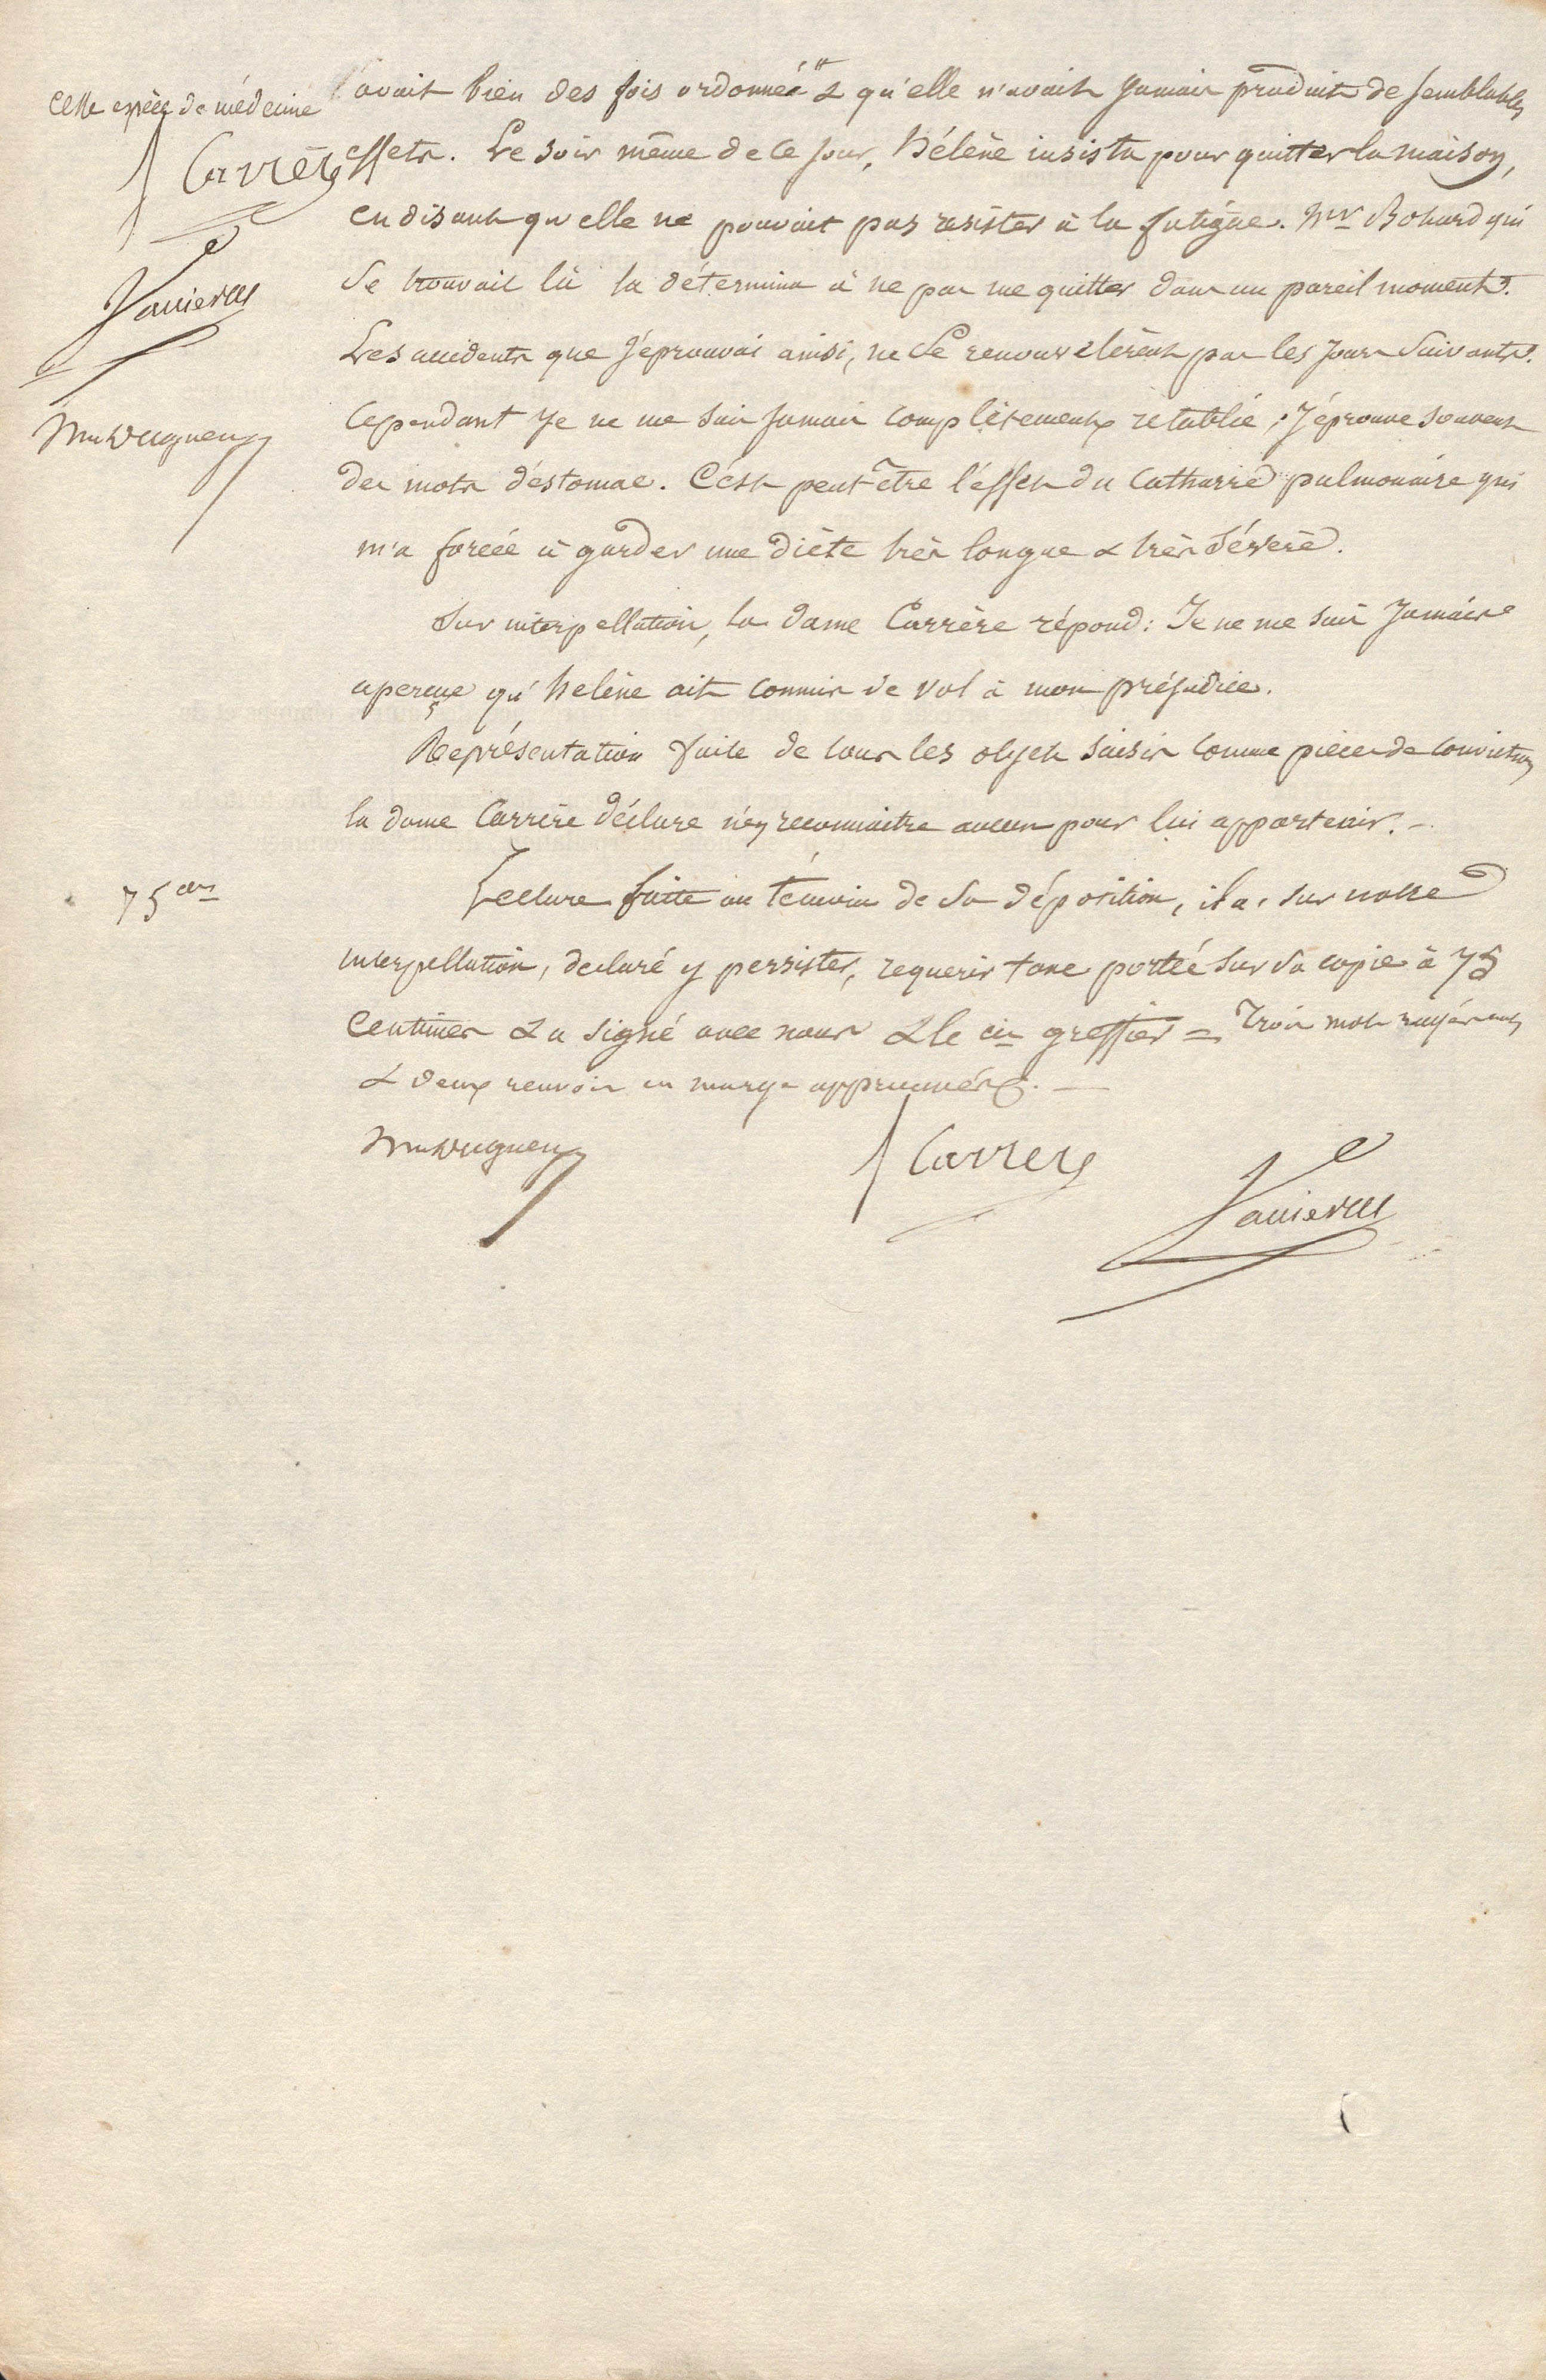 cette espèce de médecine
Carrère
Vannier
75 cmes
l'avait bien des fois ordonnéé & qu'elle n'avait jamais produit de semblables
effets. Le soir même de ce jour, hélène insista pour quitter la maison,
en disant qu'elle ne pouvait pas résister à la fatigue. Mr Bohard qui
se trouvait là la détermina à ne pas me quitter dans un pareil moment.
Les accidents que j'éprouvai ainsi, ne se renouvelèrent pas les jours suivants.
Cependant je ne me suis jamais complètement rétablie ; j'éprouve souvent
des maux d'estomac. C'est peut-être l'effet du catharre pulmonaire qui
m'a forcée à garder une diète très longue & très sévère.
Sur interpellation, la dame Carrère répond : Je ne me suis jamais
aperçue qu'helène ait commis de vol à mon préjudice.
Représentation faite de tous les objets saisis comme pièces de conviction
la dame Carrère déclare n'en reconnaitre aucun pour lui appartenir. -
Lecture faitte au témoin de sa déposition, il a, sur notre
interpellation, declaré y persister, requerir taxe portée sur sa copie à 75
centimes & a signé avec nous & le cis greffier = Trois mots rayés nuls
& deux renvois en marge approuvés. —
Carrère
Vannier